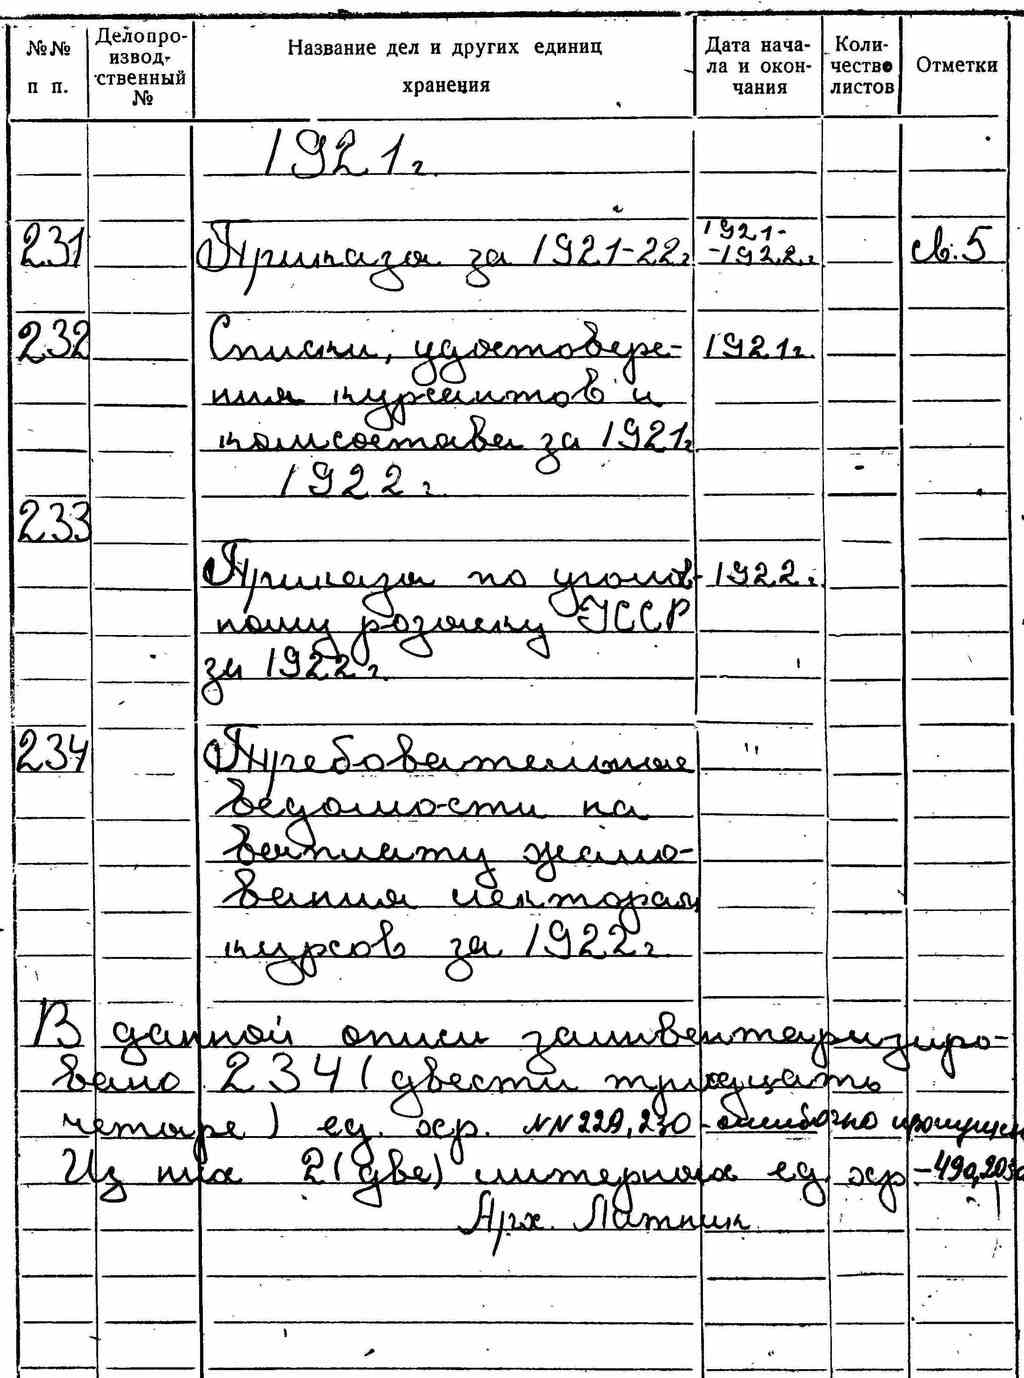 №№ п п.
Делопро-
извод-
ственный
№
Название дел и других единиц
хранения
Дата нача-
ла и окон-
чания
Коли-
чество
листов
Отметки
1921г.
231 Приказы за 1921-22г. 1921-
-1922г. св.5
232 Списки, удостовере- 1921г.
ния курсантов и
комсостава за 1921г.
1922г.
233
Приказы по уголов- 1922г.
ному розыску УССР
за 1922г.
234 Требовательные "
ведомости на
выплату жало-
вания лекторам
курсов за 1922г.
В данной описи заинвентаризиро-
вано 234 (двести тридцать
четыре) ед. хр. NN 229, 230 - ошибочно пропущен
Из них 2 (две) литерных ед. хр - 49а, 203а
Арх. Латник